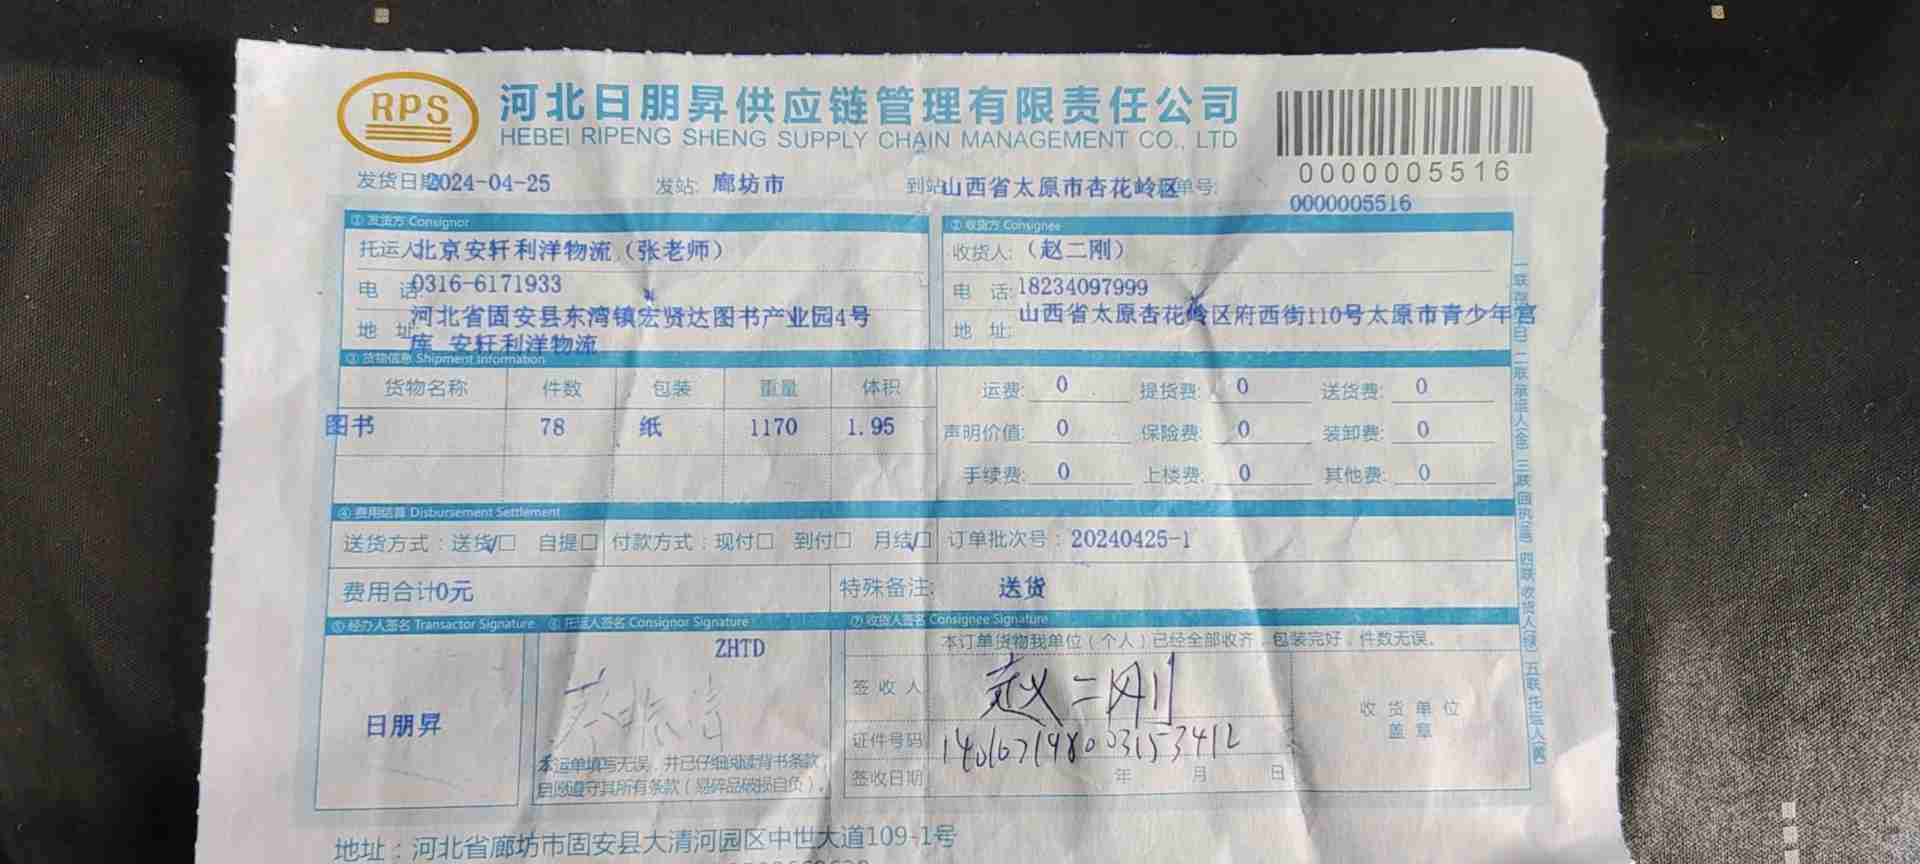 RPS
河北日朋昇供应链管理有限责任公司
HEBEI RIPENG SHENG SUPPLY CHAIN MANAGEMENT CO., LTD
0000005516
发货日期 2024-04-25 发站: 廊坊市 到站 山西省太原市杏花岭区 单号:
0000005516
① 发货方 Consignor ② 收货方 Consignee
托运人 北京安轩利洋物流（张老师） 收货人: （赵二刚）
电 话 0316-6171933 电 话: 18234097999
地 址 河北省固安县东湾镇宏贤达图书产业园4号
库 安轩利洋物流
地 址: 山西省太原杏花岭区府西街110号太原市青少年宫
③ 货物信息 Shipment Information
货物名称 件数 包装 重量 体积 运费: 0 提货费: 0 送货费: 0
图书 78 纸 1170 1.95 声明价值: 0 保险费: 0 装卸费: 0
手续费: 0 上楼费: 0 其他费: 0
④ 费用结算 Disbursement Settlement
送货方式：送货√□ 自提□ 付款方式：现付□ 到付□ 月结√□ 订单批次号：20240425-1
费用合计0元 特殊备注: 送货
⑤ 经办人签名 Transactor Signature ⑥ 托运人签名 Consignor Signature ⑦ 收货人签名 Consignee Signature
ZHTD 本订单货物我单位（个人）已经全部收齐，包装完好，件数无误。
日朋昇
签 收 人 赵二刚
收 货 单 位
盖 章
证件号码
签收日期 年 月 日
本运单填写无误，并已仔细阅读背书条款，
自愿遵守其所有条款（易碎品破损自负）。
二联 承运人(金) 三联 回执(蓝) 四联 收货人(绿) 五联 托运人(黄)
地址：河北省廊坊市固安县大清河园区中世大道109-1号